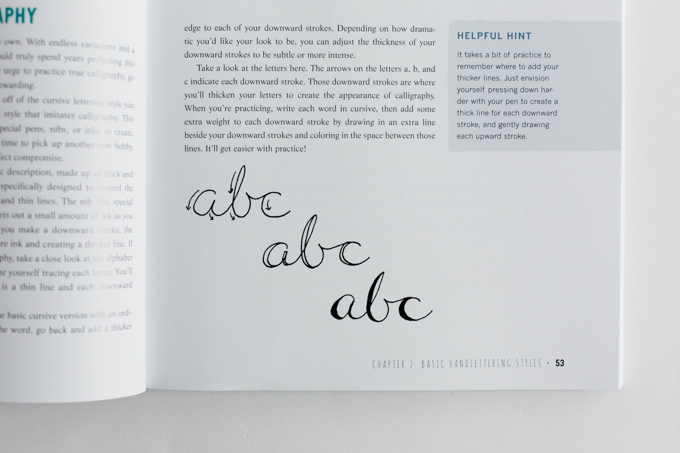 APHY
own. With endless variations and a
could truly spend years perfecting this
urge to practice true calligraphy, go
ewarding.
off of the cursive lettering style you
style that imitates calligraphy. This
pecial pens, nibs, or inks to create,
time to pick up another new hobby,
ect compromise.
c description, made up of thick and
specifically designed to control the
and thin lines. The nib special
ets out a small amount of ink as you
you make a downward stroke, the
re ink and creating a thicker line. If
phy, take a close look at the alphabet
e yourself tracing each letter. You'll
is a thin line and each downward
e basic cursive version with an ordi-
he word, go back and add a thicker
edge to each of your downward strokes. Depending on how drama-
tic you'd like your look to be, you can adjust the thickness of your
downward strokes to be subtle or more intense.
Take a look at the letters here. The arrows on the letters a, b, and
c indicate each downward stroke. Those downward strokes are where
you'll thicken your letters to create the appearance of calligraphy.
When you're practicing, write each word in cursive, then add some
extra weight to each downward stroke by drawing in an extra line
beside your downward strokes and coloring in the space between those
lines. It'll get easier with practice!
abc
abc
abc
HELPFUL HINT
It takes a bit of practice to
remember where to add your
thicker lines. Just envision
yourself pressing down har-
der with your pen to create a
thick line for each downward
stroke, and gently drawing
each upward stroke.
CHAPTER 2: BASIC HANDLETTERING STYLES • 53